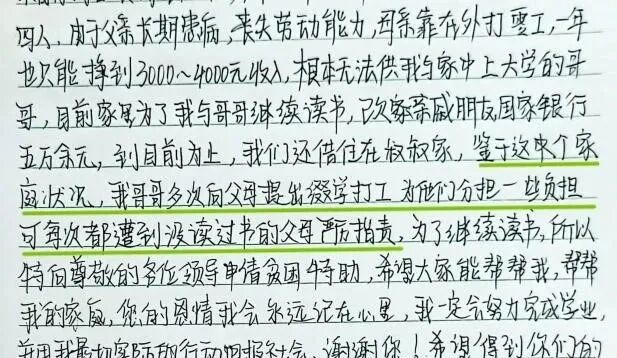 四人,由于父亲长期患病,丧失劳动能力,母亲靠在外打零工,一年
也只能挣到3000~4000元收入,根本无法供我与家中上大学的哥
哥,目前家里为了我与哥哥继续读书,已欠家亲戚朋友国家银行
五万余元,到目前为止,我们还借住在叔叔家,鉴于这中个家
庭状况,我哥哥多次向父母提出缀学打工 为他们分担一些负担
可每次都遭到没读过书的父母严厉指责,为了继续读书,所以
特向尊敬的各位领导申请贫困特助,希望大家能帮帮我,帮帮
我的家庭,您的恩情我会永远记在心里,我一定会努力完成学业,
并用我最切实际的行动回报社会,谢谢你!希望得到你们的